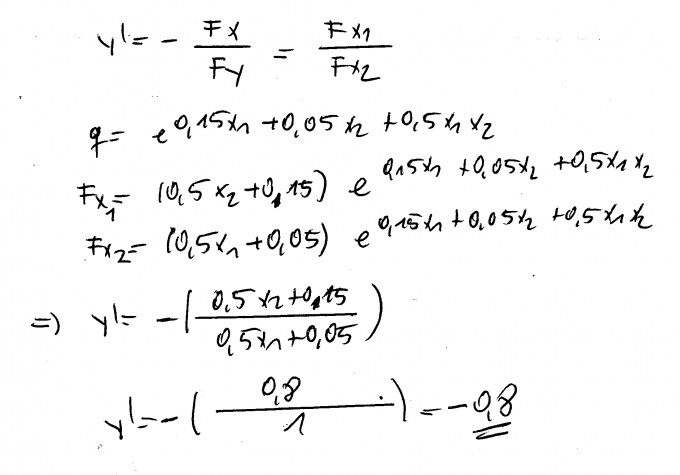 y' = - Fx / Fy = Fx1 / Fx2
q = e^0,15x1 + 0,05x2 + 0,5x1x2
Fx1 = (0,5x2 + 0,15) e^0,15x1 + 0,05x2 + 0,5x1x2
Fx2 = (0,5x1 + 0,05) e^0,15x1 + 0,05x2 + 0,5x1x2
=) y' = - ( 0,5x2 + 0,15 / 0,5x1 + 0,05 )
y' = - ( 0,8 / 1 ) = - 0,8